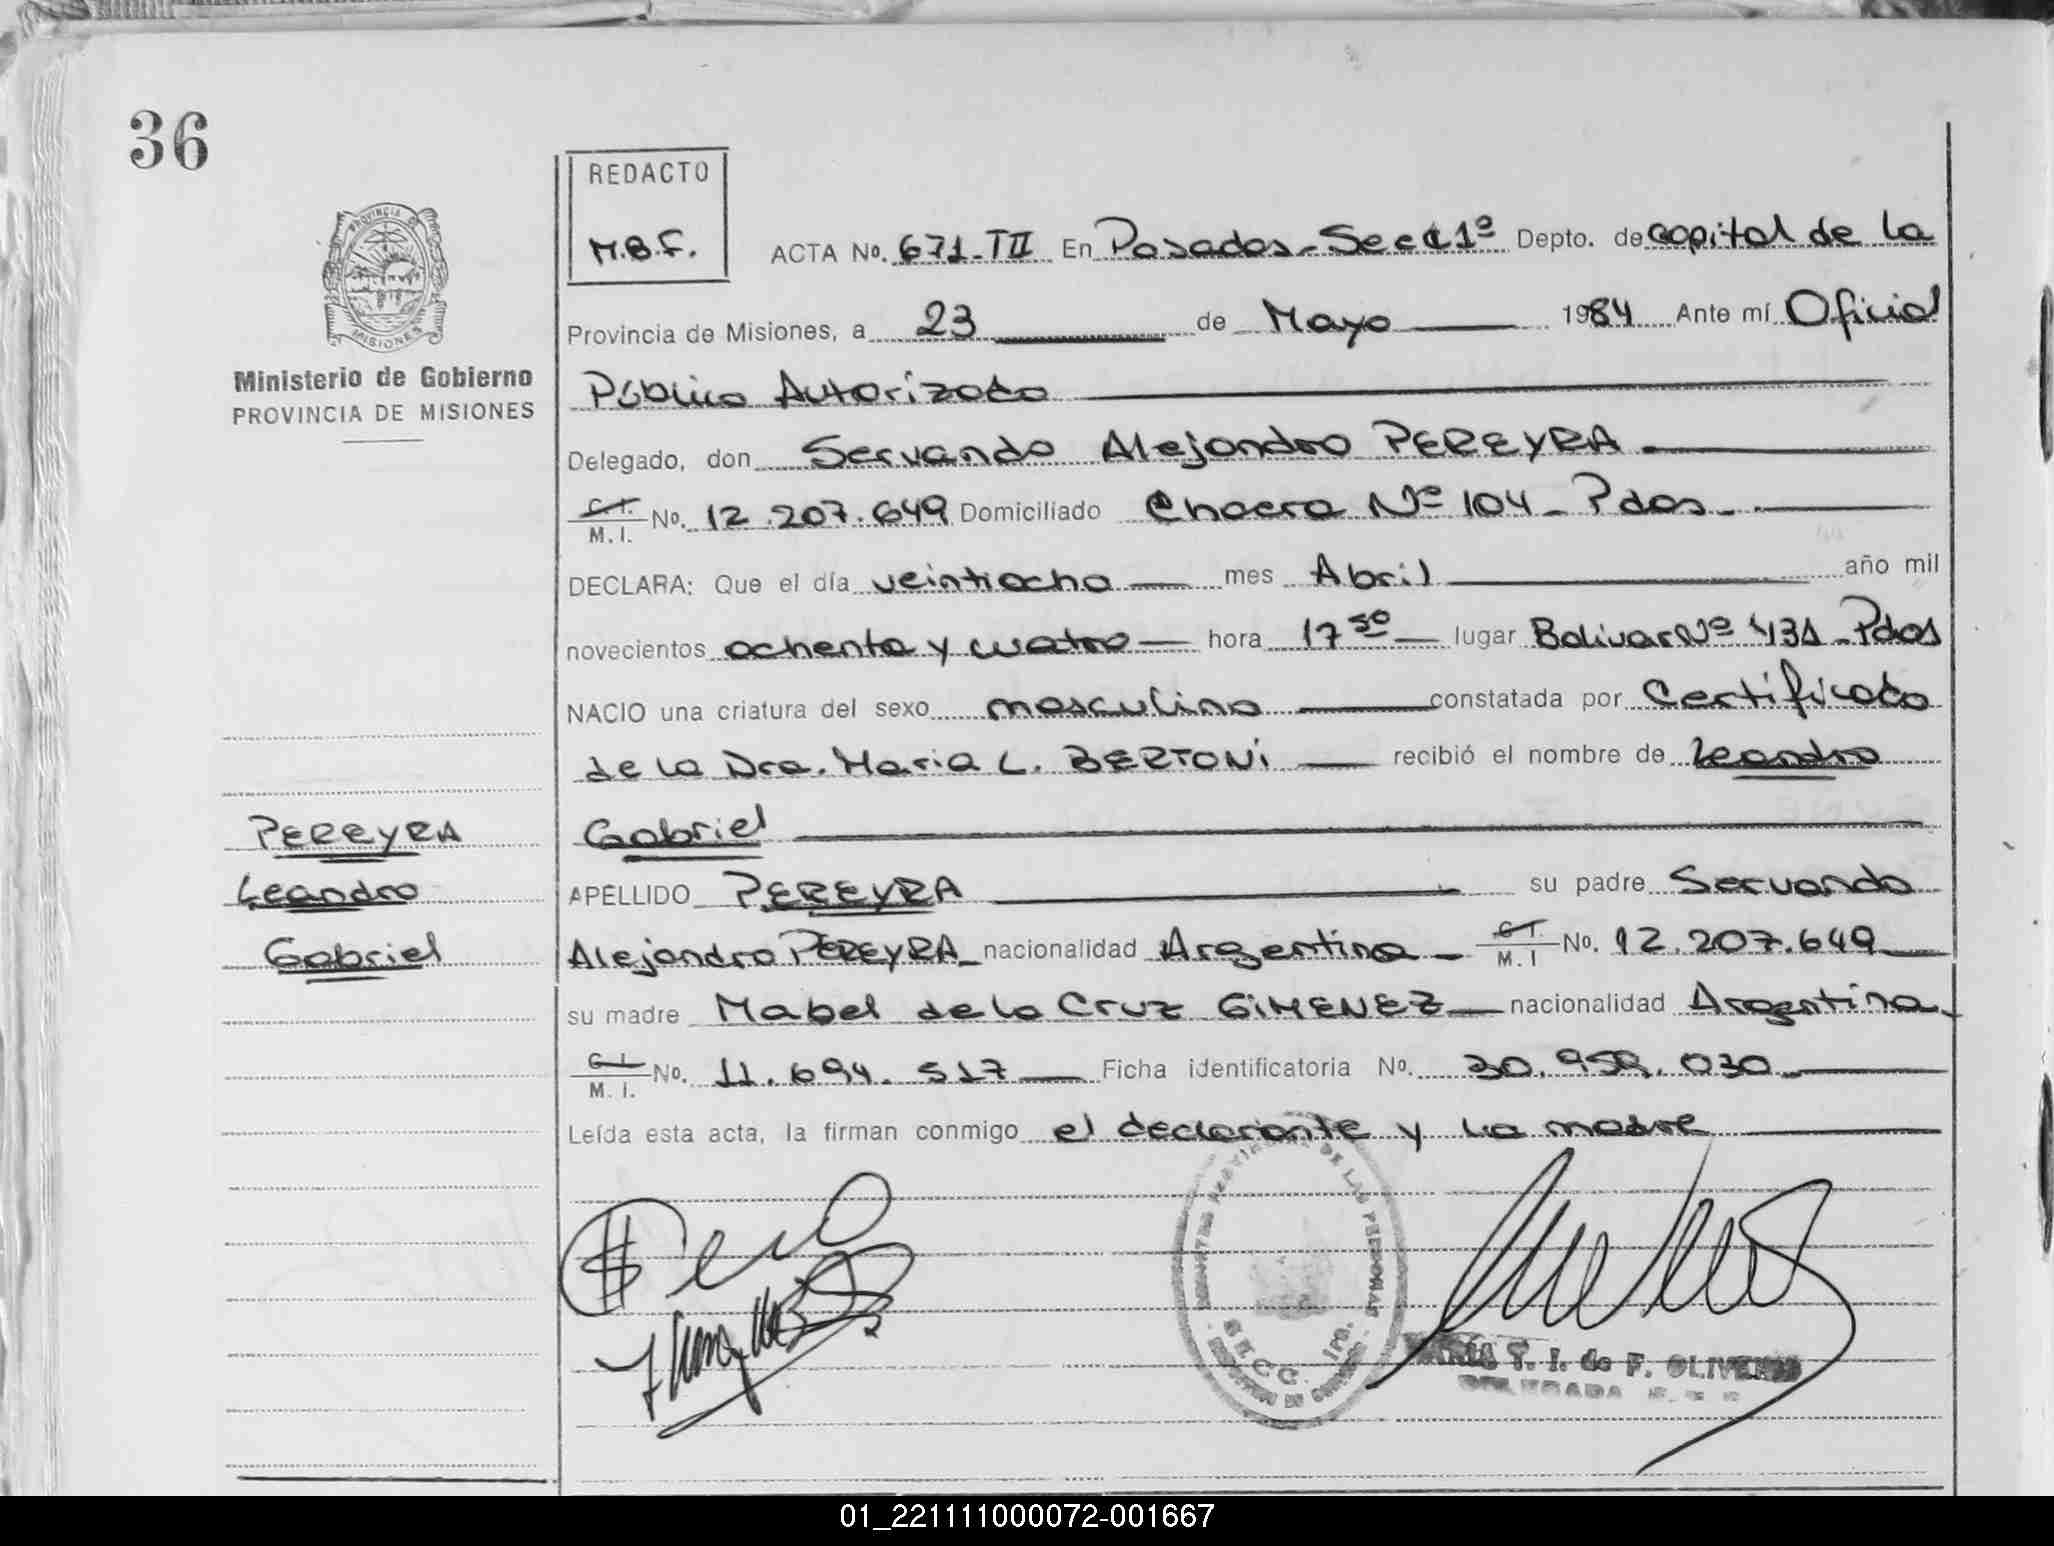 36
REDACTO
M.B.F.
ACTA No. 671-TII En Posadas-Secc 1ª Depto. de capital de la
Provincia de Misiones, a 23 de Mayo 1984 Ante mí Oficial
Público Autorizado
Delegado, don Servando Alejandro PEREYRA
C.I. M.I. No. 12.207.649 Domiciliado Chacra Nº 104 - Pdas.
DECLARA: Que el día veintiocho mes Abril año mil
novecientos ochenta y cuatro hora 17 30 lugar Bolivar Nº 431 - Pdas
NACIO una criatura del sexo masculino constatada por Certificado
de la Dra. Maria L. BERTONI recibió el nombre de Leandro
Gabriel
APELLIDO PEREYRA su padre Servando
Alejandro PEREYRA nacionalidad Argentina C.I. M.I No. 12.207.649
su madre Mabel de la Cruz GIMENEZ nacionalidad Argentina
C.I. M.I. No. 11.694.517 Ficha identificatoria No. 30.959.030
Leída esta acta, la firman conmigo el declarante y la madre
PROVINCIA DE MISIONES
Ministerio de Gobierno
PROVINCIA DE MISIONES
PEREYRA
Leandro
Gabriel
DE LAS PERSONAS
SECC. 1ra.
T. I. de F. OLIVEIRA
DELEGADA
01_221111000072-001667